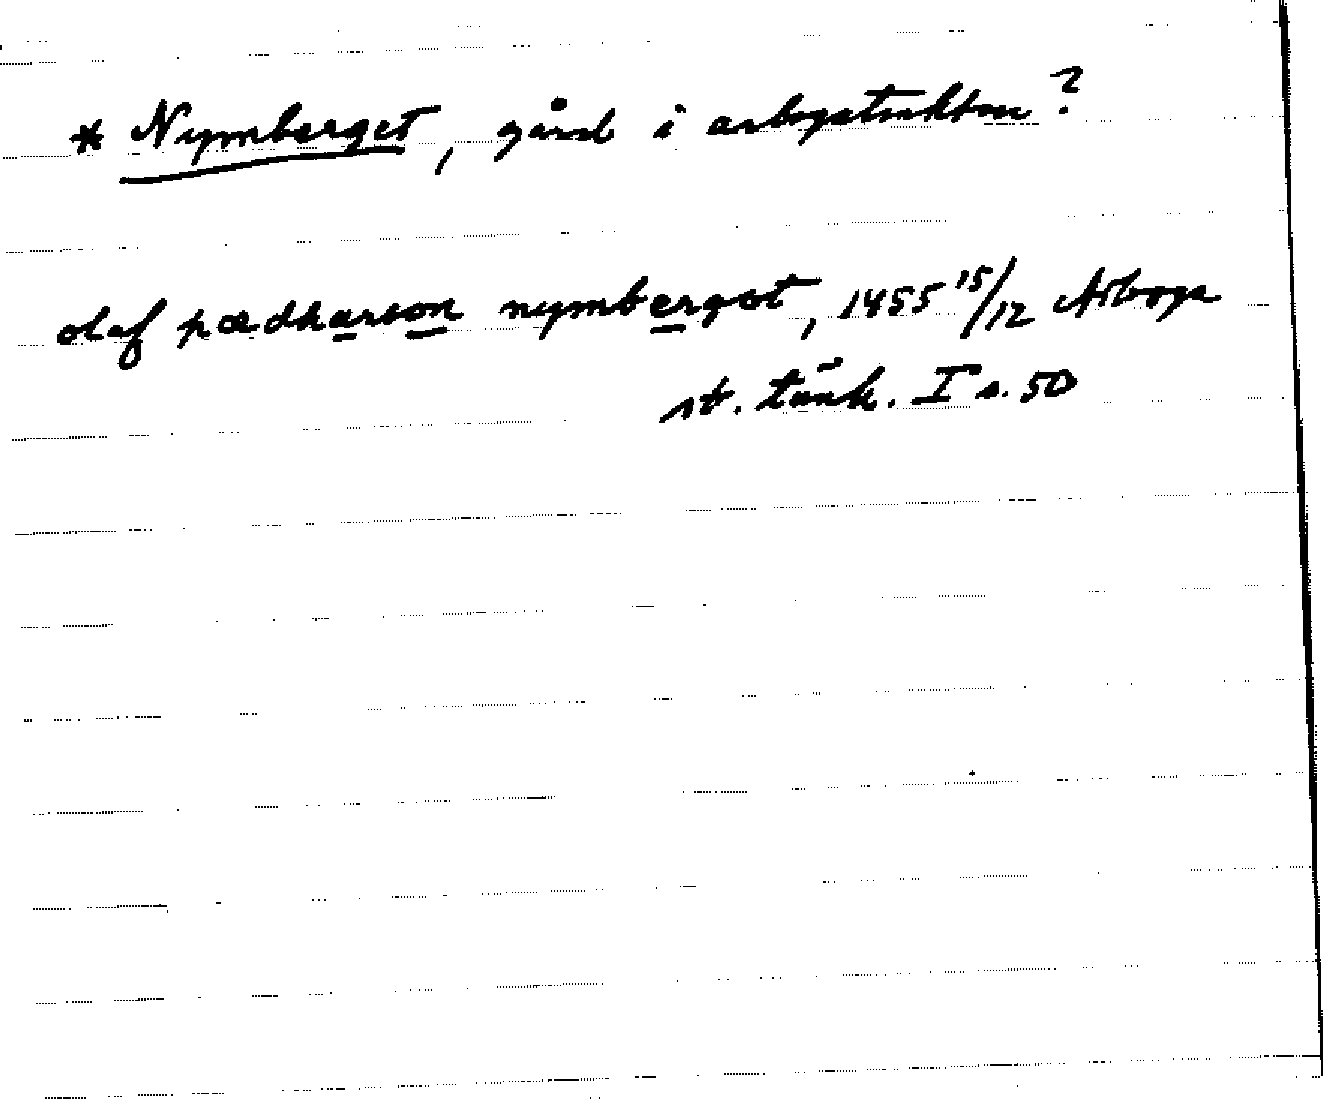 * Nymberget, gård i arbogatrakten?
olaf pædharson nymbergot, 1455 15/12 Arboga
st. tänk. I s. 50